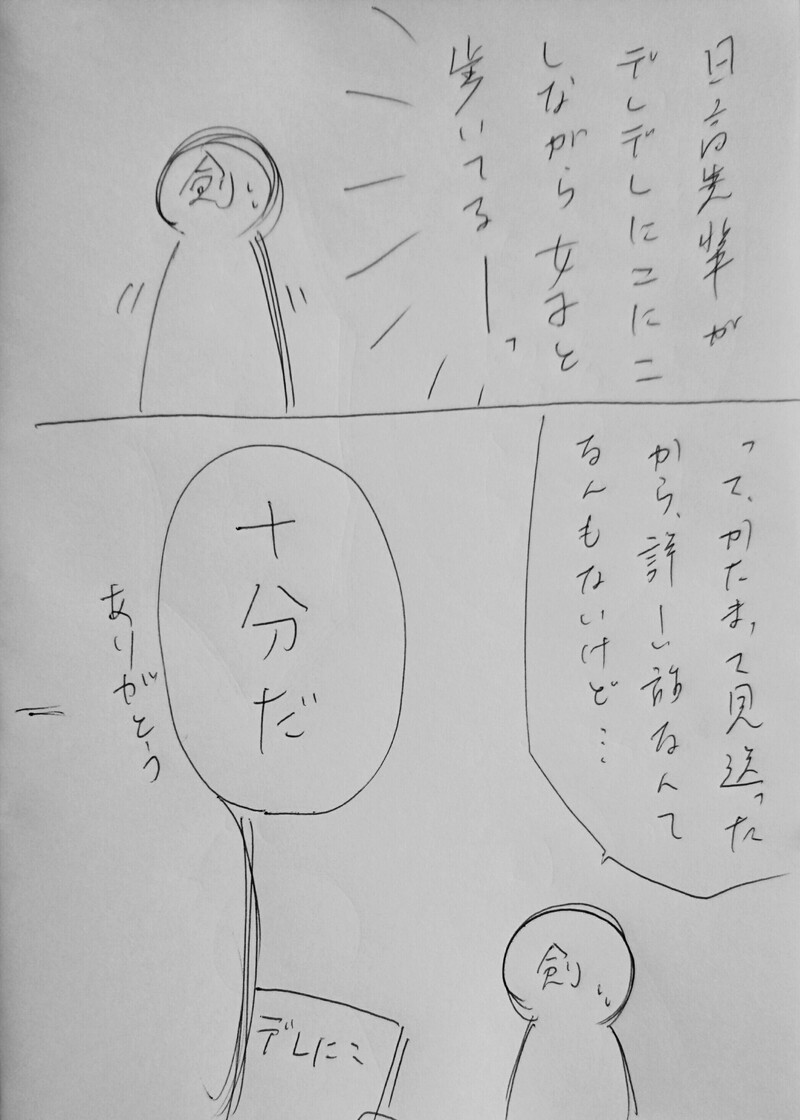 日高先輩が
デレデレにこにこ
しながら女子と
歩いてるーっ
剣
って、かたまって見送った
から、詳しい話なんて
なんもないけど…
十分だ
ありがとう
剣
デレにこ